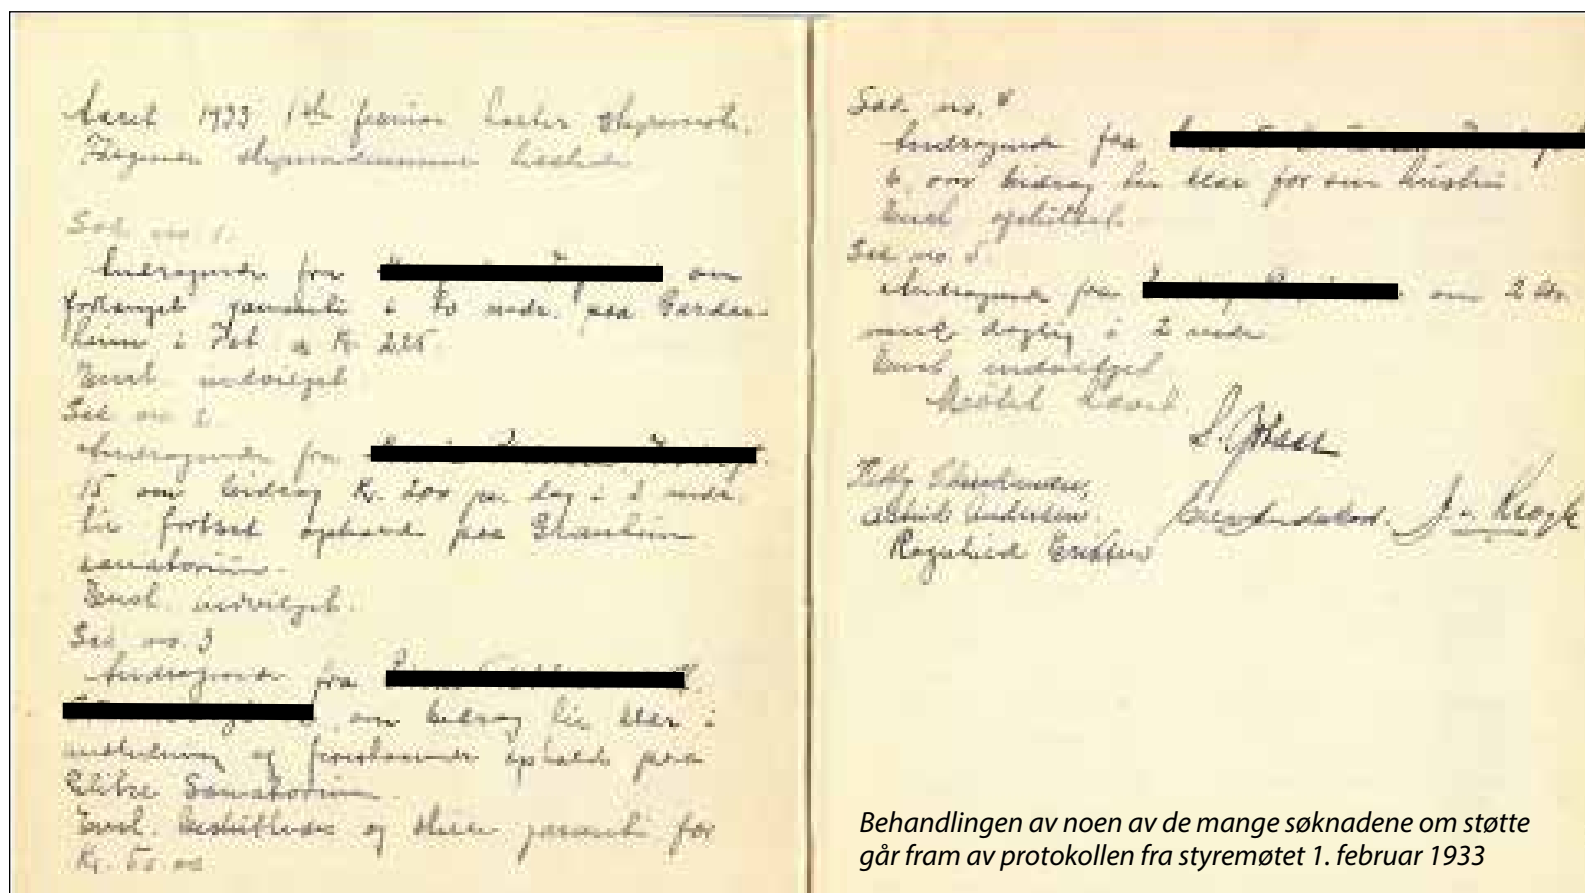 Aaret 1933 1ste februar holdes styremøte.
styremedlemmer
Sak no. 1.
Andragende fra om
forlenget garanti i mdr. paa Gardar-
heim i Feb. a Kr. 225.
Enst. indvilget
Sak no 2.
Andragende fra
15 om bidrag Kr. 2.00 pr. dag i 2 mdr.
til fortsat ophold paa Granheim
sanatorium.
Enst. indvilget.
Sak no. 3
Andragende fra
om bidrag til klær i
anledning og forestaaende ophold paa
Sanatorium.
Enst. besluttedes og stille garanti for
Kr. 50.00
Sak no. 4
Andragende fra
6, om bidrag til klær for sin hustru.
Enst. opsluttet.
Sak no. 5.
Andragende fra om 2 ltr.
melk daglig i 2 mdr.
Enst. indvilget
Møtet hævet.
Andersen.
Ragnhild
J. v. Krogh
Behandlingen av noen av de mange søknadene om støtte
går fram av protokollen fra styremøtet 1. februar 1933